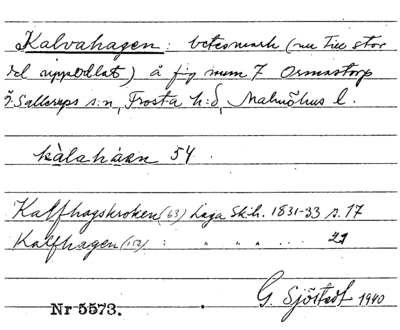 Kalvahagen: betesmark (nu till stor
del uppodlat) å fig num 7 Ormastorp
Ö. Sallerups s:n, Frosta h:d, Malmöhus l.
kàlahàan 54
Kalfhagskroken (63) Laga Sk:h. 1831-33 s. 17
Kalfhagen (152) : " " " ... 21
G. Sjöstedt 1940
Nr 5573.